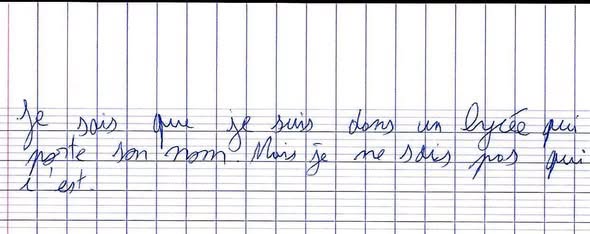 Je sais que je suis dans un lycée qui
porte son nom. Mais je ne sais pas qui
c'est.